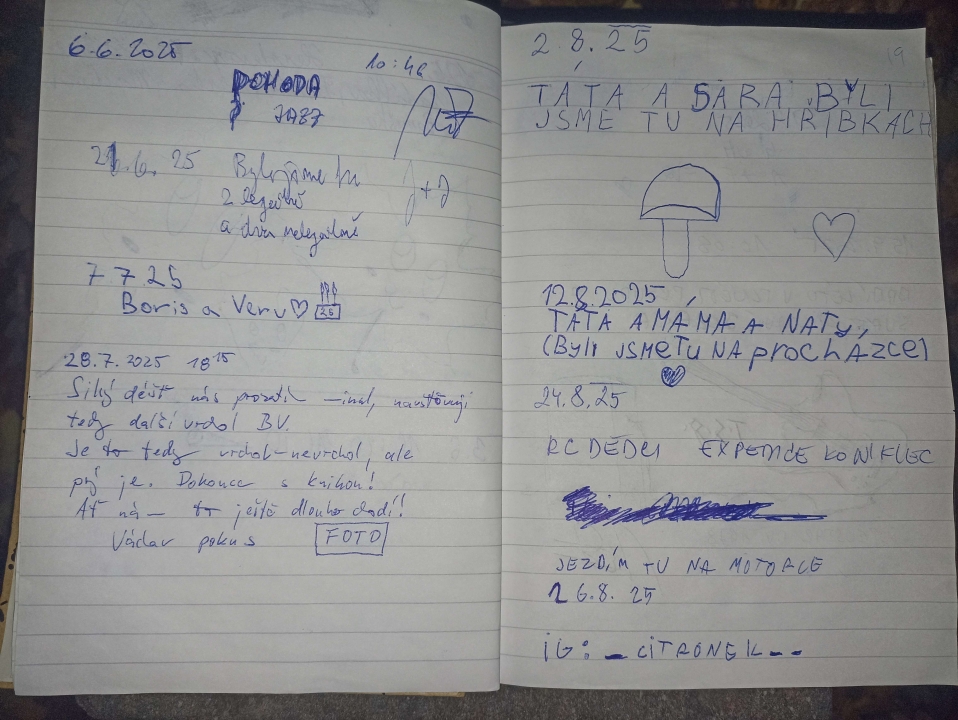 6.6.2025
10:46
POHODA
JA87
21.6. 25 Byli jsme tu
2 legálně
a dva nelegálně
J+J
7 7 25
Boris a Veru
26
28.7.2025 18¹⁵
déšť nás
tedy další vrchol BV.
Je to tedy vrchol-nevrchol, ale
prý je. Dokonce s knihou!
Ať to ještě dlouho
Václav pokus FOTO
19
2.8.25
TÁTA A SÁRA BYLI
JSME TU NA HŘIBKACH
12.8.2025
TÁTA A MÁMA A NATY,
(Byli JSMETU NA procházce)
24.8.25
RC DĚDCI EXPEDICE KONIKLEC
JEZDÍM TU NA MOTORCE
26.8. 25
IG: _CITRONEK__